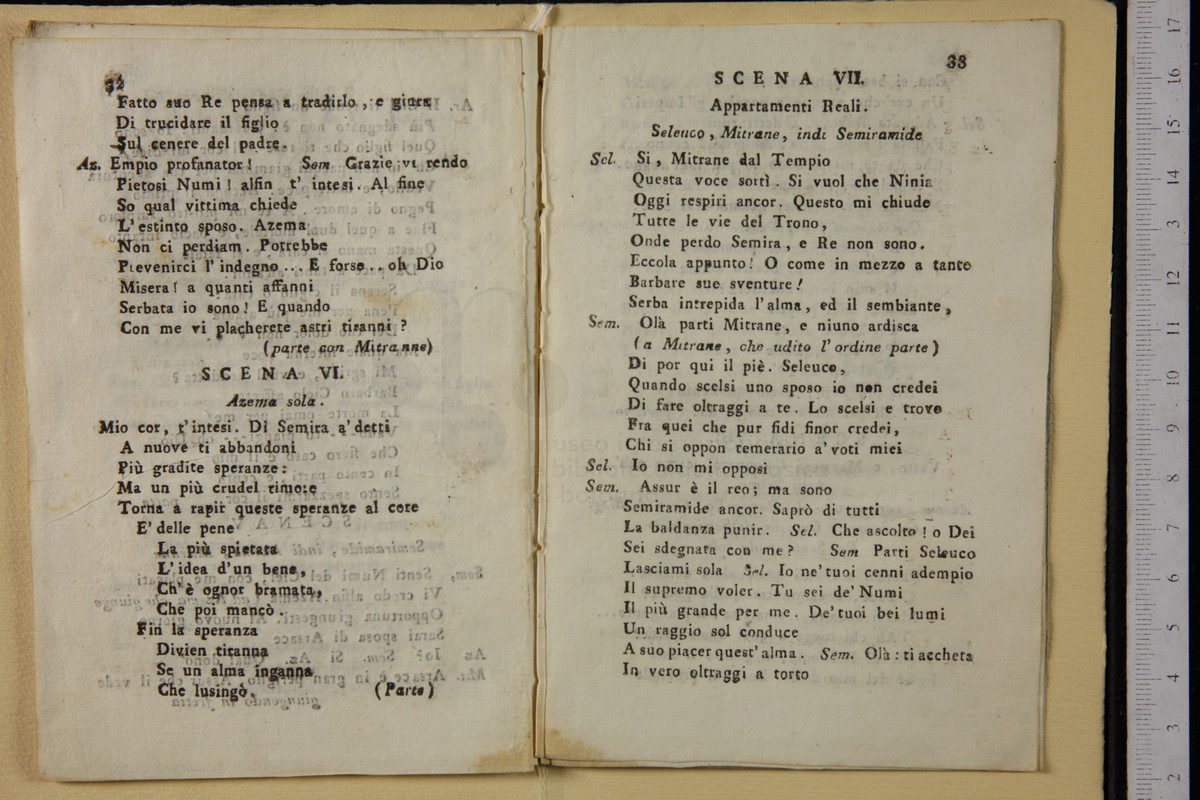 32
Fatto suo Re pensa a tradirlo, e giura
Di trucidare il figlio
Sul cenere del padre.
Az. Empio profanator! Sem Grazie vi rendo
Pietosi Numi! alfin t' intesi. Al fine
So qual vittima chiede
L' estinto sposo. Azema
Non ci perdiam. Potrebbe
Prevenirci l' indegno... E forse.. oh Dio
Misera! a quanti affanni
Serbata io sono! E quando
Con me vi placherete astri tiranni?
(parte con Mitranne)
SCENA VI.
Azema sola.
Mio cor, t' intesi. Di Semira a' detti
A nuove ti abbandoni
Più gradite speranze:
Ma un più crudel timore
Torna a rapir queste speranze al core
E' delle pene
La più spietata
L' idea d'un bene,
Ch' è ognor bramata,
Che poi mancò.
Fin la speranza
Divien tiranna
Se un alma inganna
Che lusingò. (Parte)
33
SCENA VII.
Appartamenti Reali.
Seleuco, Mitrane, indi Semiramide
Sel. Si, Mitrane dal Tempio
Questa voce sortì. Si vuol che Ninia
Oggi respiri ancor. Questo mi chiude
Tutte le vie del Trono,
Onde perdo Semira, e Re non sono.
Eccola appunto! O come in mezzo a tante
Barbare sue sventure!
Serba intrepida l'alma, ed il sembiante,
Sem. Olà parti Mitrane, e niuno ardisca
(a Mitrane, che udito l' ordine parte)
Di por qui il piè. Seleuco,
Quando scelsi uno sposo io non credei
Di fare oltraggi a te. Lo scelsi e trovo
Fra quei che pur fidi finor credei,
Chi si oppon temerario a' voti miei
Sel. Io non mi opposi
Sem. Assur è il reo; ma sono
Semiramide ancor. Saprò di tutti
La baldanza punir. Sel. Che ascolto! o Dei
Sei sdegnata con me? Sem Parti Seleuco
Lasciami sola Sel. Io ne' tuoi cenni adempio
Il supremo voler. Tu sei de' Numi
Il più grande per me. De' tuoi bei lumi
Un raggio sol conduce
A suo piacer quest' alma. Sem. Olà: ti accheta
In vero oltraggi a torto